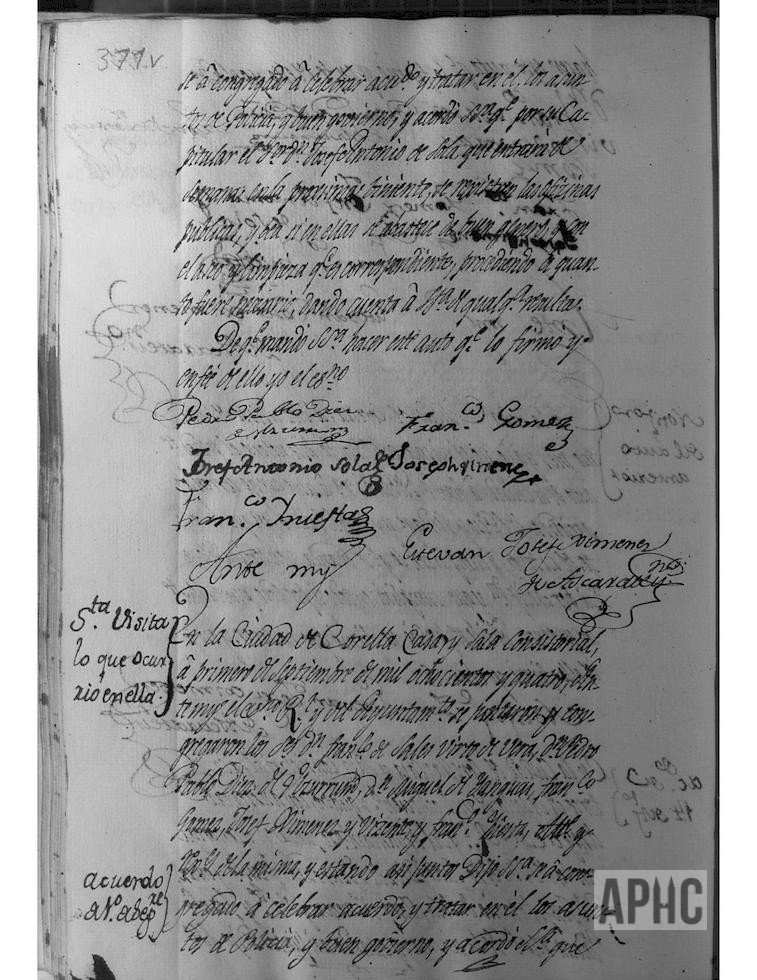 371.v
se â congregado â celebrar acu.do y tratar en él, los asun-
tos de Policia, y buen govierno, y acordó SS.ria q.e por su Ca-
pitular el S.or d.n Josef Antonio de Sola que entrará de
semana en la proxima siniente, se registren las oficinas
publicas, y vea si en ellas se abastece de buen genero, y con
el aseo y limpieza q.e es correspondiente, procediendo â quan-
to fuere necesario, dando cuenta â SS.ria de qualq.a resulta.
De q.e mandó SS.ria hacer este auto q.e lo firmó y
en fee de ello yo el es.no
Pedro Pablo Diez
Fran.co Gomez
Josef Antonio Sola
Joseph ximenez
Fran.co Yniesta
Estevan Josef Ximenez
Ante my
de Ascarate
S.ta Visita
lo que ocur
rió en ella.
En la Ciudad de Corella Casas y Sala Consistorial,
â primero de Septiembre de mil ochocientos y quatro, an
te my el es.no R.l y del Ayuntam.to se juntaron y con-
gregaron los Señ.s d.n Fran.co de Sales Virto de Vera, d.n Pedro
Pablo Diez de d.n Miguel de Fran.co
Gomez, Josef Ximenez y Vicente, y Fran.co Yniesta, Alc.e y
Reg.s de la misma, y estando asi juntos Dijo SS.ria se â con-
gregado â celebrar acuerdo, y tratar en él los asun-
tos de Policia, y buen govierno, y acordó SS.ria que
acuerdo
de
APHC